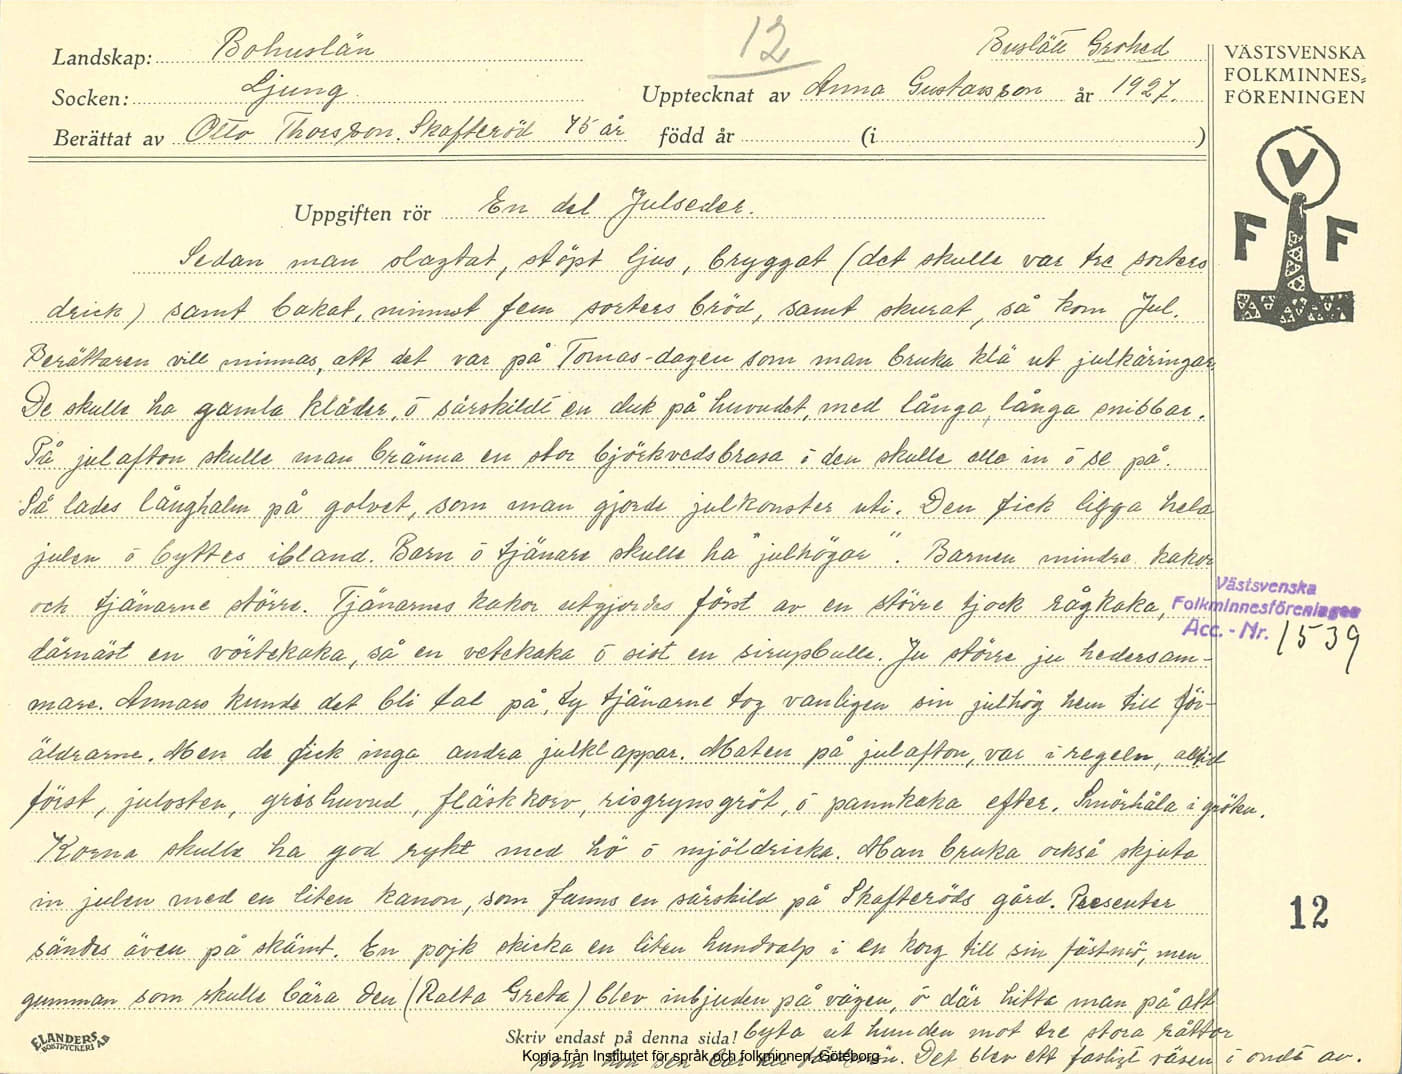 12
Landskap: Bohuslän
Buslätt Grohed
Socken: Ljung
Upptecknat av Anna Gustavsson år 1927.
Berättat av Otto Thorsson. Skafteröd 75 år född år (i )
VÄSTSVENSKA
FOLKMINNES-
FÖRENINGEN
V
F F
Uppgiften rör En del Julseder.
Sedan man slagtat, stöpt ljus, bryggat (det skulle var tre sorters
drick) samt bakat, minnst fem sorters bröd, samt skurat, så kom Jul.
Berättaren vill minnas, att det var på Tomas-dagen som man bruka klä ut julkäringar.
De skulle ha gamla kläder, ö särskildt en duk på huvudet, med långa, långa snibbar.
På julafton skulle man bränna en stor björkvedsbrasa ö den skulle alla in ö se på.
Så lades långhalm på golvet, som man gjorde julkonster uti. Den fick ligga hela
julen ö byttes ibland. Barn ö tjänare skulle ha "julhögar". Barnen mindre kakor
och tjänarne större. Tjänarnes kakor utgjordes först av en större tjock rågkaka,
därnäst en vörtekaka, så en vetekaka ö sist en sirupbulle. Ju större ju hedersam-
mare. Annars kunde det bli tal på, ty tjänarne tog vanligen sin julhög hem till för-
äldrarne. Men de fick inga andra julklappar. Maten på julafton, var i regeln, alltid
först, julosten, grishuvud, fläskkorv, risgrynsgröt, ö pannkaka efter. Smörhåla i gröten.
Korna skulle ha god rykt med hö ö mjöldricka. Man bruka också skjuta
in julen med en liten kanon, som fanns en särskild på Skafteröds gård. Presenter
sändes även på skämt. En pojk skicka en liten hundvalp i en korg till sin fästmö, men
gumman som skulle bära den (Ralta Greta) blev inbjuden på vägen, ö där hitta man på att
byta ut hunden mot tre stora råttor
som hon sen bar till fästmön. Det blev ett fasligt väsen ö ondt av.
Västsvenska
Folkminnesföreningen
Acc.-Nr. 1539
12
ELANDERS
BOKTRYCKERI AB
Skriv endast på denna sida!
Kopia från Institutet för språk och folkminnen, Göteborg